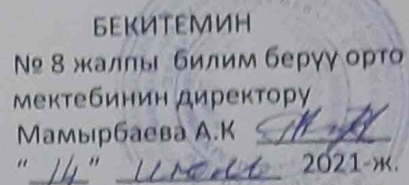 БЕКИТЕМИН
№ 8 жалпы билим берүү орто
мектебинин директору
Мамырбаева А.К
"14" 2021-ж.